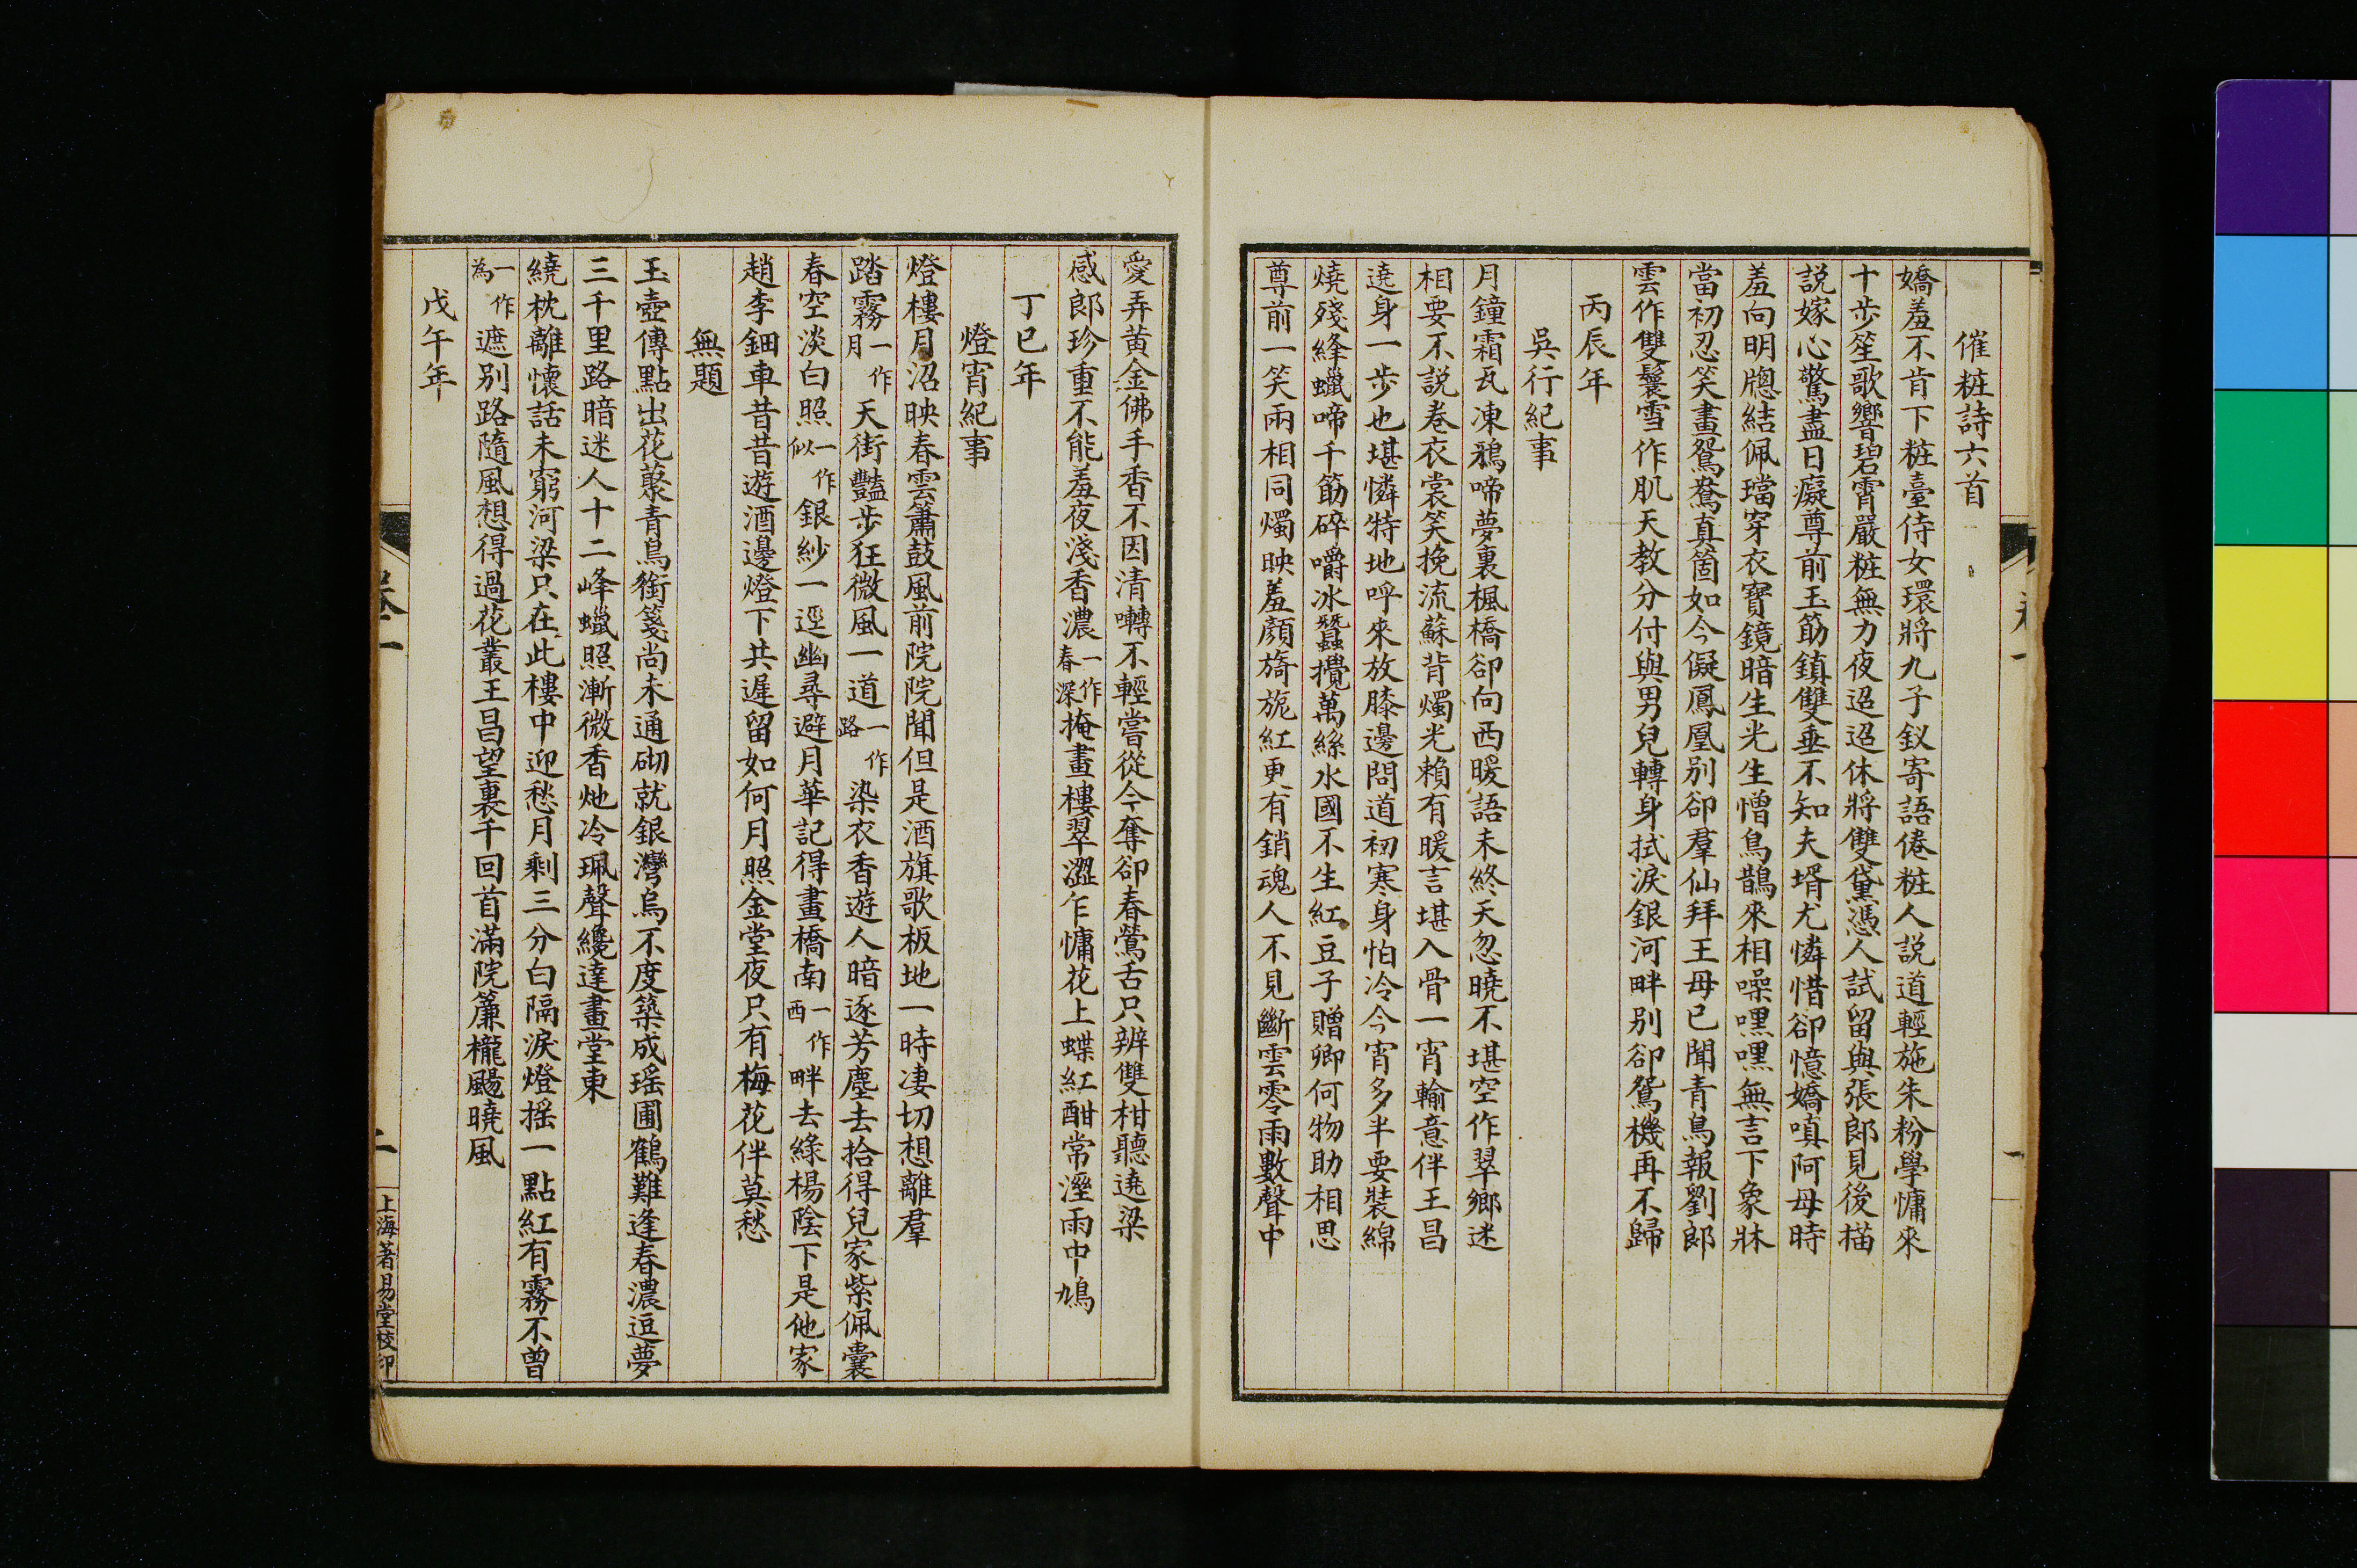 催粧詩六首
嬌羞不肯下粧臺侍女環將九子釵寄語倦粧人説道輕施朱粉學慵來
十步笙歌響碧霄嚴粧無力夜迢迢休將雙黛憑人試留與張郎見後描
説嫁心驚盡日癡尊前玉筯鎮雙垂不知夫壻尤憐惜卻憶嬌嗔阿母時
羞向明牕結佩璫穿衣寶鏡暗生光生憎鳥鵲來相噪嘿嘿無言下象牀
當初忍笑畫鴛鴦真箇如今儗鳳凰別卻羣仙拜王母已聞青鳥報劉郎
雲作雙鬟雪作肌天教分付與男兒轉身拭淚銀河畔別卻鴛機再不歸
丙辰年
吳行紀事
月鐘霜瓦凍鴉啼夢裏楓橋卻向西暖語未終天忽曉不堪空作翠鄉迷
相要不説卷衣裳笑挽流蘇背燭光賴有暖言堪入骨一宵輸意伴王昌
遶身一步也堪憐特地呼來放膝邊問道初寒身怕冷今宵多半要裝綿
燒殘絳蠟啼千筯碎嚼冰蠶攪萬絲水國不生紅豆子贈卿何物助相思
尊前一笑兩相同燭映羞顔旖旎紅更有銷魂人不見斷雲零雨數聲中
卷一
一
愛弄黃金佛手香不因清囀不輕嘗從今奪卻春鶯舌只辨雙柑聽遶梁
感郎珍重不能羞夜淺香濃一作春深掩畫樓翠澀乍慵花上蝶紅酣常溼雨中鳩
丁巳年
燈宵紀事
燈樓月沼映春雲簫鼓風前院院聞但是酒旗歌板地一時淒切想離羣
踏霧一作月天街豔步狂微風一道一作路染衣香遊人暗逐芳塵去拾得兒家紫佩囊
春空淡白照一作似銀紗一逕幽尋避月華記得畫橋南一作西畔去綠楊陰下是他家
趙李鈿車昔昔遊酒邊燈下共遲留如何月照金堂夜只有梅花伴莫愁
無題
玉壺傳點出花蘂青鳥銜箋尚未通砌就銀灣烏不度築成瑤圃鶴難逢春濃逗夢
三千里路暗迷人十二峰蠟照漸微香灺冷珮聲纔達畫堂東
繞枕離懷話未窮河梁只在此樓中迎愁月剩三分白隔淚燈搖一點紅有霧不曾
一作為遮別路隨風想得過花叢王昌望裏千回首滿院簾櫳颺曉風
戊午年
卷一
二
上海著易堂校印